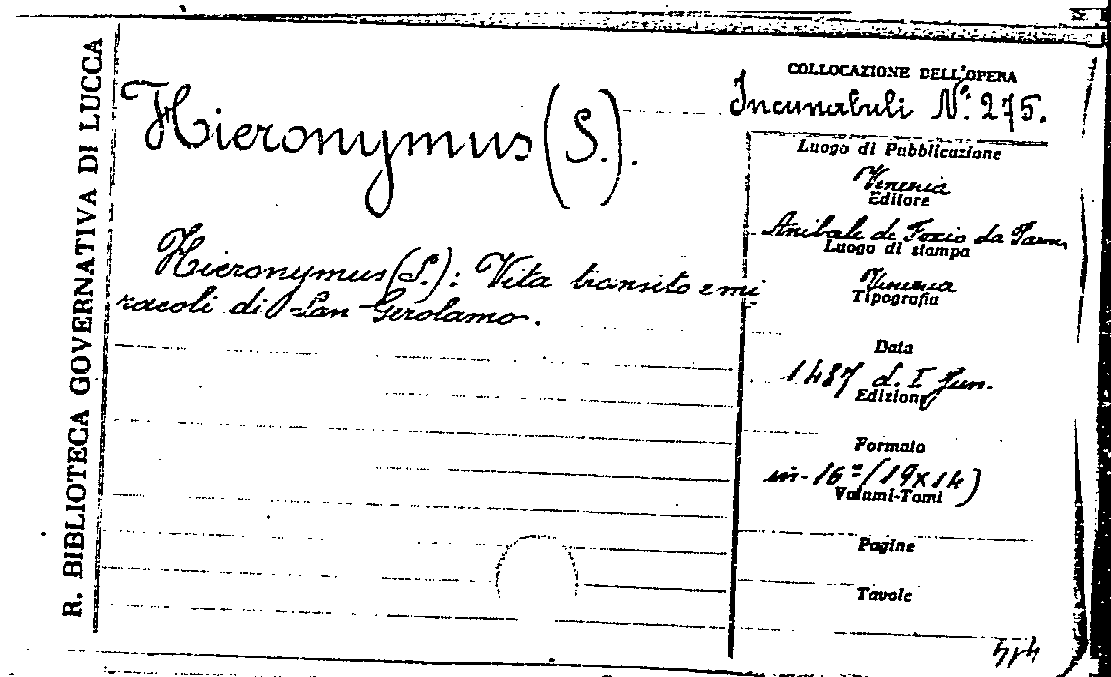 R. BIBLIOTECA GOVERNATIVA DI LUCCA
Hieronymus (S.).
Hieronymus (S.): Vita transito e mi
racoli di San Gerolamo.
COLLOCAZIONE DELL'OPERA
Incunabuli Nº. 275.
Luogo di Pubblicazione
Venezia
Editore
Anibale di Foxio da Parm.
Luogo di stampa
Venezia
Tipografia
Data
1487 d. I Jun.
Edizione
Formato
in-16º (19x14)
Volumi-Tomi
Pagine
Tavole